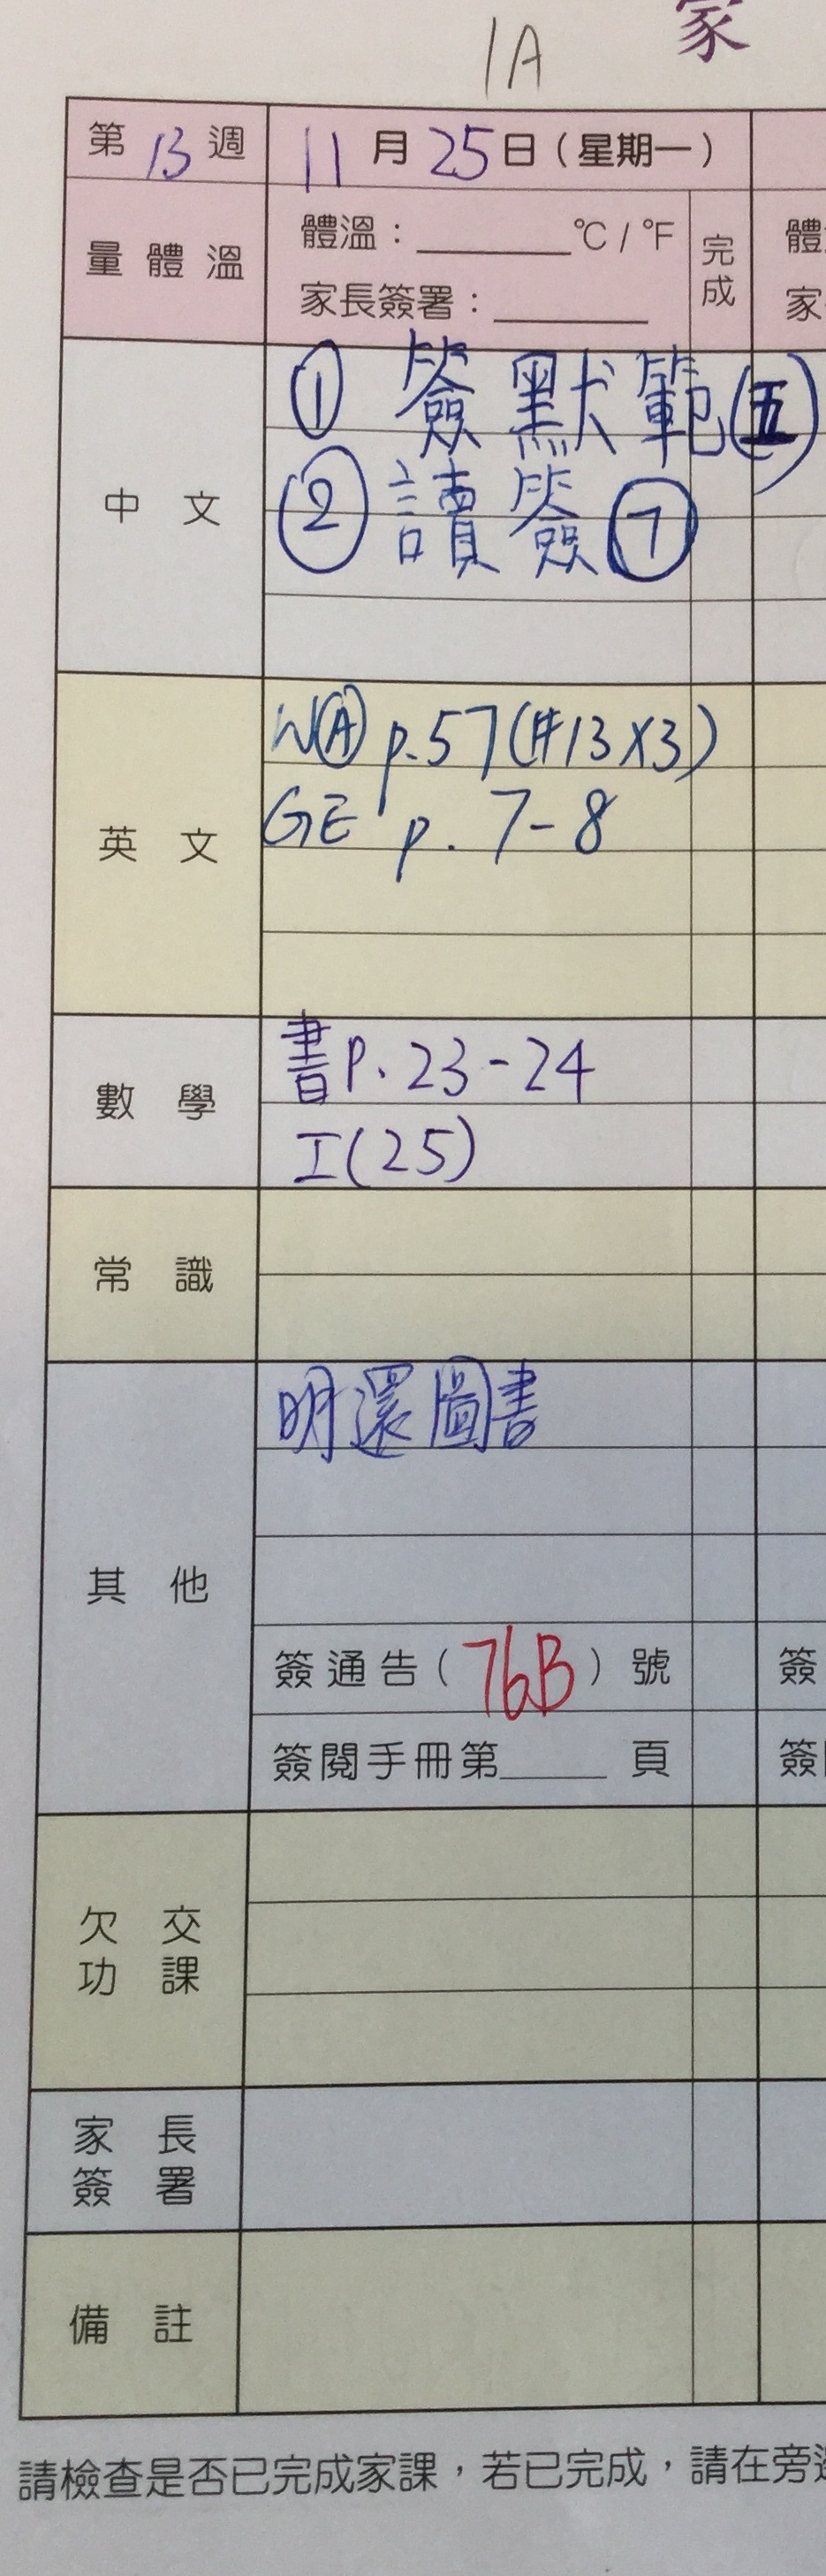 1A
家
第 13 週
11 月 25 日 (星期一)
量 體 溫
體溫：______°C / °F
家長簽署：______
完成
體
家
中 文
① 簽 默 範 (五)
② 讀 簽 ⑦
英 文
WⒶ p.57 (#13 X3)
GE p. 7-8
數 學
書P. 23-24
I(25)
常 識
其 他
明還圖書
簽通告 ( 76B ) 號
簽閱手冊第_____ 頁
簽
簽
欠 交
功 課
家 長
簽 署
備 註
請檢查是否已完成家課，若已完成，請在旁